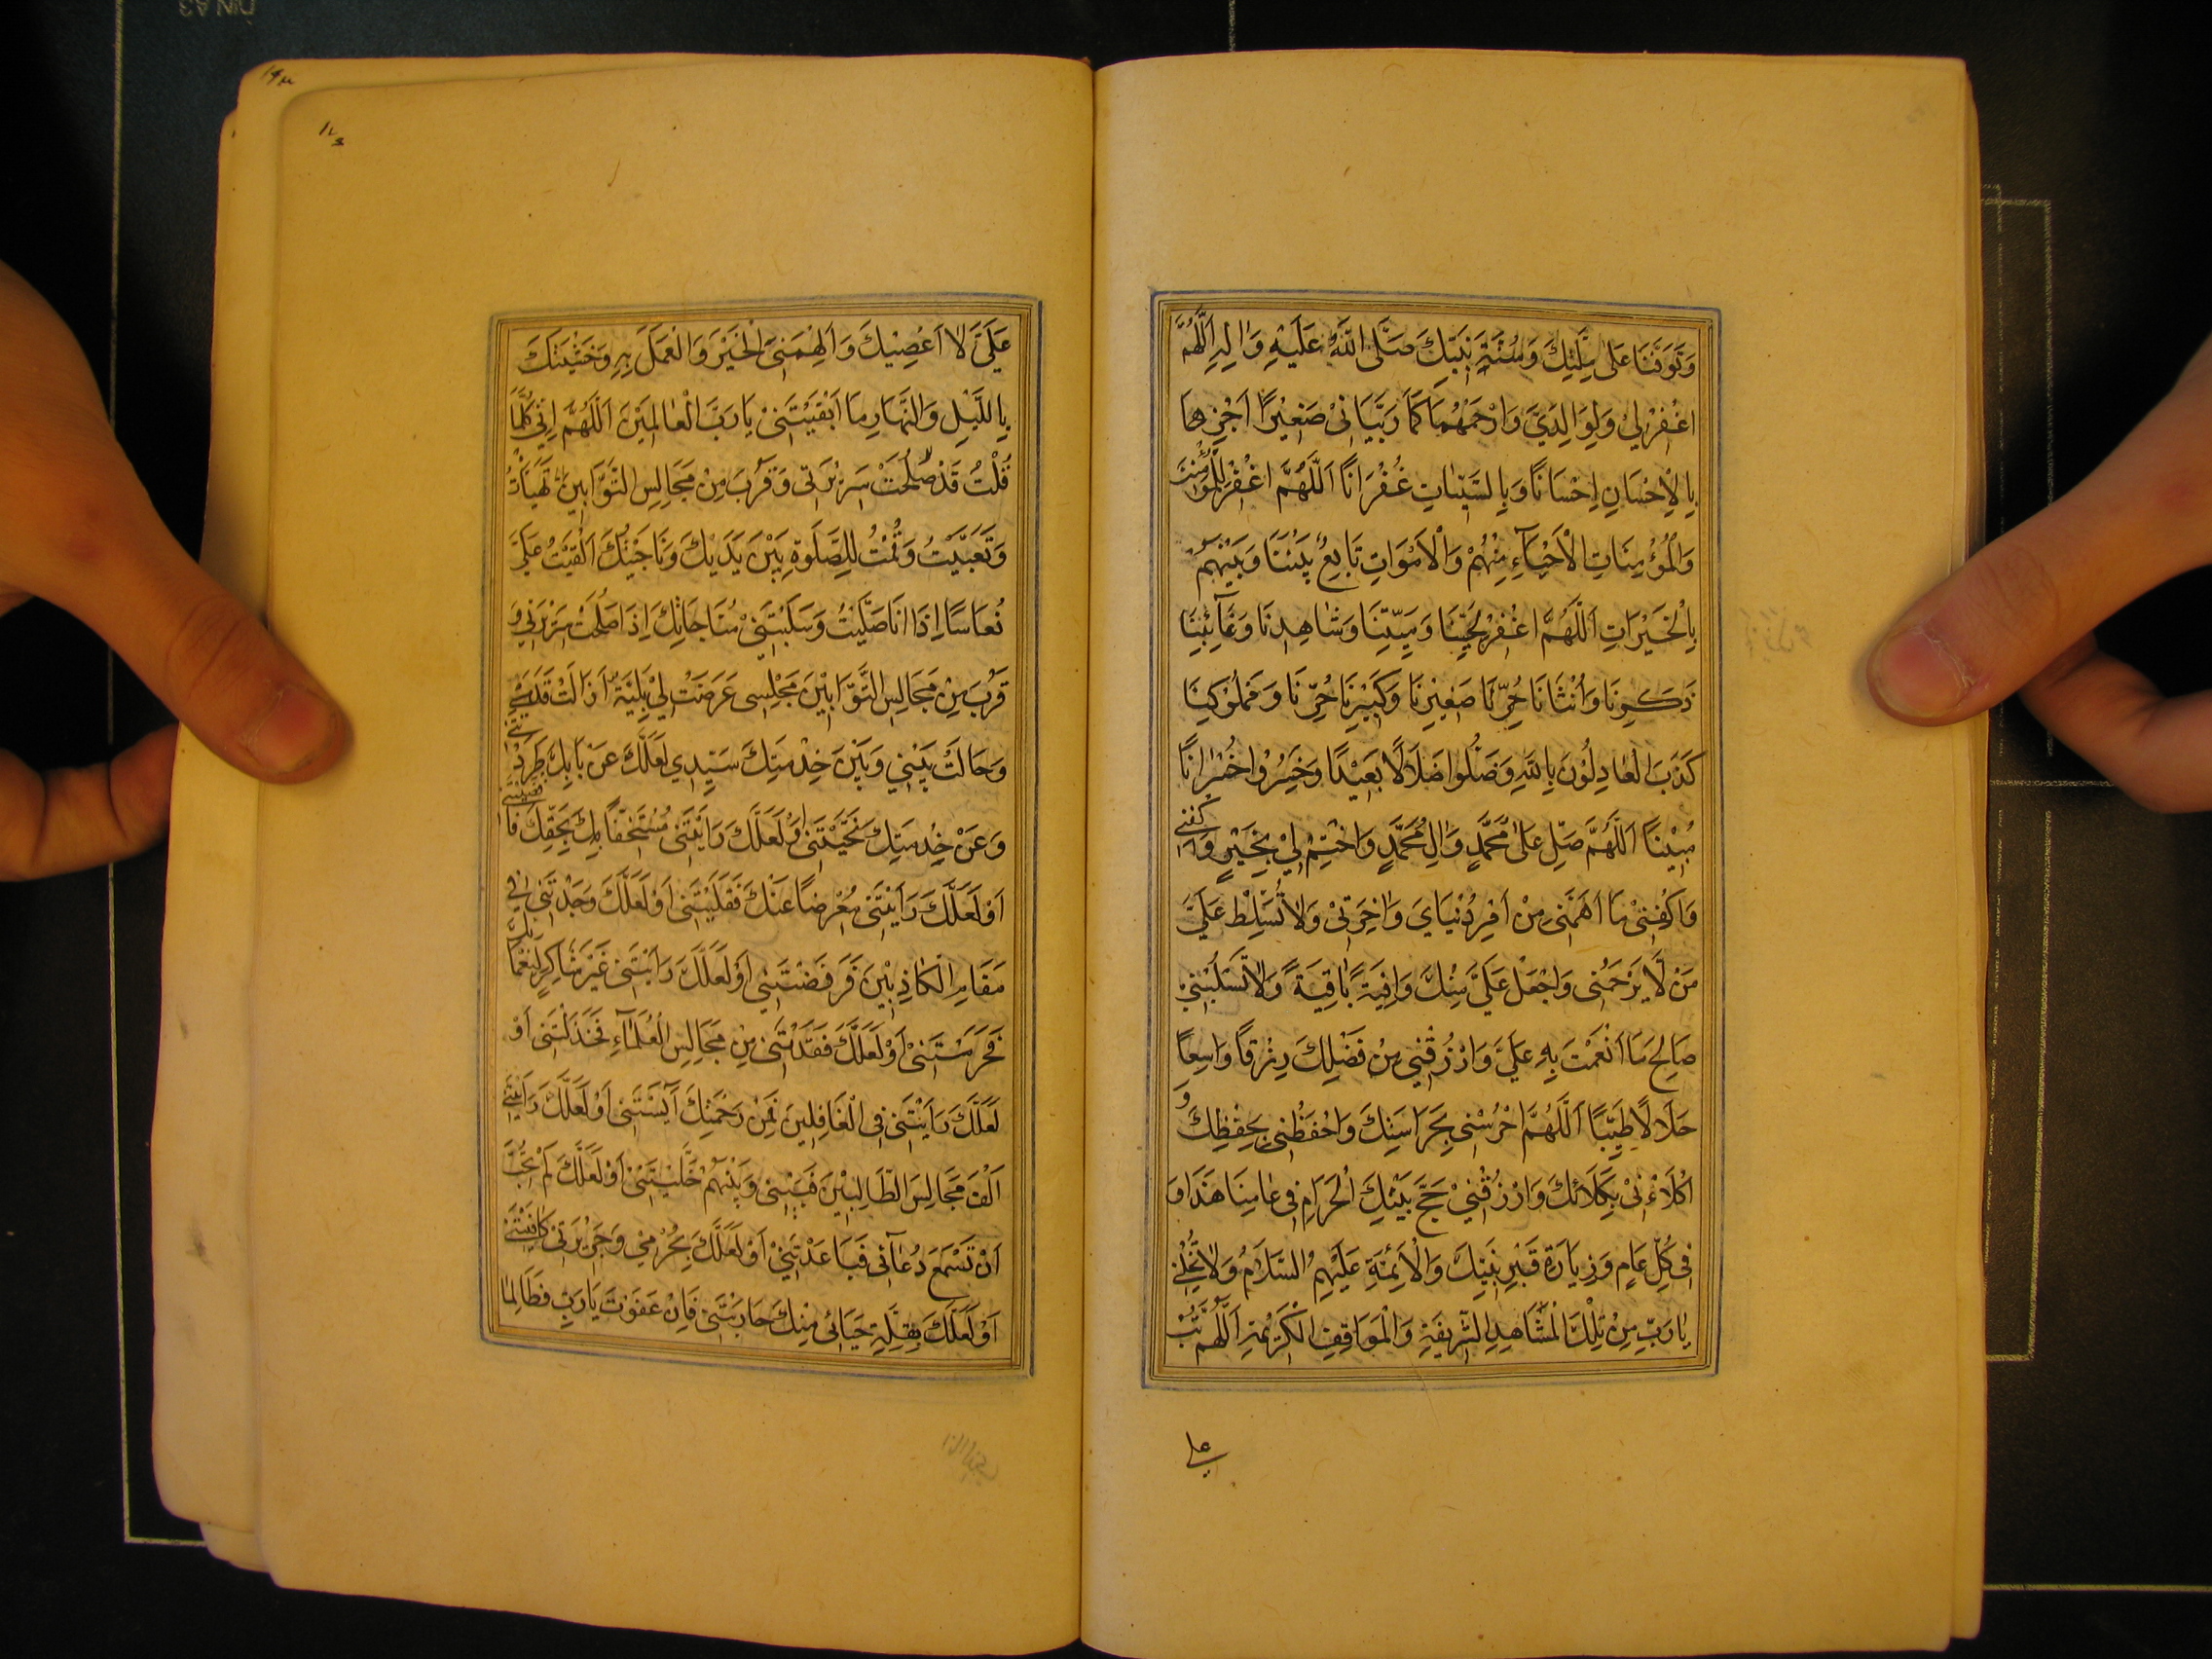 وَتَوَفَّنَا عَلٰى مِلَّتِكَ وَسُنَّةِ نَبِيِّكَ صَلَّى اللّٰهُ عَلَيْهِ وَاٰلِهِ اَللّٰهُمَّ
اغْفِرْ لِي وَلِوَالِدَيَّ وَارْحَمْهُمَا كَمَا رَبَّيَانِي صَغِيْرًا اَجْزِهِمَا
بِالْاِحْسَانِ اِحْسَانًا وَبِالسَّيِّئَاتِ غُفْرَانًا اَللّٰهُمَّ اغْفِرْ لِلْمُؤْمِنِينَ
وَالْمُؤْمِنَاتِ الْاَحْيَآءِ مِنْهُمْ وَالْاَمْوَاتِ تَابِعْ بَيْنَنَا وَبَيْنَهُمْ
بِالْخَيْرَاتِ اَللّٰهُمَّ اغْفِرْ لِحَيِّنَا وَمَيِّتِنَا وَشَاهِدِنَا وَغَآئِبِنَا
ذَكَرِنَا وَاُنْثَانَا صَغِيْرِنَا وَكَبِيْرِنَا حُرِّنَا وَمَمْلُوْكِنَا
كَذَبَ الْعَادِلُوْنَ بِاللّٰهِ وَضَلُّوا ضَلَالًا بَعِيْدًا وَخَسِرُوا خُسْرَانًا
مُبِيْنًا اَللّٰهُمَّ صَلِّ عَلٰى مُحَمَّدٍ وَاٰلِ مُحَمَّدٍ وَاخْتِمْ لِيْ بِخَيْرٍ وَاكْفِنِي
وَاكْفِنِيْ مَا اَهَمَّنِي مِنْ اَمْرِ دُنْيَايَ وَاٰخِرَتِيْ وَلَا تُسَلِّطْ عَلَيَّ
مَنْ لَا يَرْحَمُنِي وَاجْعَلْ عَلَيَّ مِنْكَ وَاقِيَةً بَاقِيَةً وَلَا تَسْلُبْنِي
صَالِحَ مَا اَنْعَمْتَ بِهِ عَلَيَّ وَارْزُقْنِي مِنْ فَضْلِكَ رِزْقًا وَاسِعًا
حَلَالًا طَيِّبًا اَللّٰهُمَّ احْرُسْنِي بِحَرَاسَتِكَ وَاحْفَظْنِي بِحِفْظِكَ وَ
اكْلَاءْنِيْ بِكِلَائِكَ وَارْزُقْنِيْ حَجَّ بَيْتِكَ الْحَرَامِ فِي عَامِنَا هٰذَا وَ
فِي كُلِّ عَامٍ وَزِيَارَةَ قَبْرِ نَبِيِّكَ وَالْاَئِمَّةِ عَلَيْهِمُ السَّلَامُ وَلَا تُخْلِنِي
يَارَبِّ مِنْ تِلْكَ الْمَشَاهِدِ الشَّرِيفَةِ وَالْمَوَاقِفِ الْكَرِيْمَةِ اَللّٰهُمَّ تُبْ
علي
۱۷۳
عَلَيَّ لَا اَعْصِيْكَ وَاَلْهِمْنِي الْخَيْرَ وَالْعَمَلَ بِهِ وَخَشْيَتَكَ
بِاللَّيْلِ وَالنَّهَارِ مَا اَبْقَيْتَنِيْ يَارَبَّ الْعَالَمِيْنَ اَللّٰهُمَّ اِنِّي كُلَّمَا
قُلْتُ قَدْ صَلُحَتْ سَرِيْرَتِي وَقَرُبَ مِنْ مَجَالِسِ التَّوَّابِيْنَ تَهَيَّأْتُ
وَتَعَبَّيْتُ وَقُمْتُ لِلصَّلَوةِ بَيْنَ يَدَيْكَ وَنَاجَيْتُكَ اَلْقَيْتَ عَلَيَّ
نُعَاسًا اِذَا اَنَا صَلَّيْتُ وَسَلَبْتَنِيْ مُنَاجَاتِكَ اِذَا صَلُحَتْ سَرِيْرَتِي وَ
قَرُبَ مِنْ مَجَالِسِ التَّوَّابِيْنَ مَجْلِسِي عَرَضَتْ لِيْ بَلِيَّةٌ اَزَالَتْ قَدَمِيْ
وَحَالَتْ بَيْنِي وَبَيْنَ خِدْمَتِكَ سَيِّدِي لَعَلَّكَ عَنْ بَابِكَ طَرَدْتَنِي
وَعَنْ خِدْمَتِكَ نَحَّيْتَنِي اَوْ لَعَلَّكَ رَاَيْتَنِي مُسْتَخِفًّا بِحَقِّكَ فَاَقْصَيْتَنِي
اَوْ لَعَلَّكَ رَاَيْتَنِي مُعْرِضًا عَنْكَ فَقَلَيْتَنِي اَوْ لَعَلَّكَ وَجَدْتَنِي فِي
مَقَامِ الْكَاذِبِيْنَ فَرَفَضْتَنِي اَوْ لَعَلَّكَ رَاَيْتَنِي غَيْرَ شَاكِرٍ لِنَعْمَائِكَ
فَحَرَمْتَنِيْ اَوْ لَعَلَّكَ فَقَدْتَنِي مِنْ مَجَالِسِ الْعُلَمَآءِ فَخَذَلْتَنِي اَوْ
لَعَلَّكَ رَاَيْتَنِي فِي الْغَافِلِيْنَ فَمِنْ رَحْمَتِكَ اٰيَسْتَنِي اَوْ لَعَلَّكَ رَاَيْتَنِي
اٰلَفَ مَجَالِسَ الْبَطَّالِيْنَ فَبَيْنِي وَبَيْنَهُمْ خَلَّيْتَنِيْ اَوْ لَعَلَّكَ لَمْ تُحِبَّ
اَنْ تَسْمَعَ دُعَآئِي فَبَاعَدْتَنِيْ اَوْ لَعَلَّكَ بِجُرْمِي وَجَرِيْرَتِيْ كَافَيْتَنِيْ
اَوْ لَعَلَّكَ بِقِلَّةِ حَيَائِي مِنْكَ جَازَيْتَنِي فَاِنْ عَفَوْتَ يَارَبِّ فَطَالَمَا